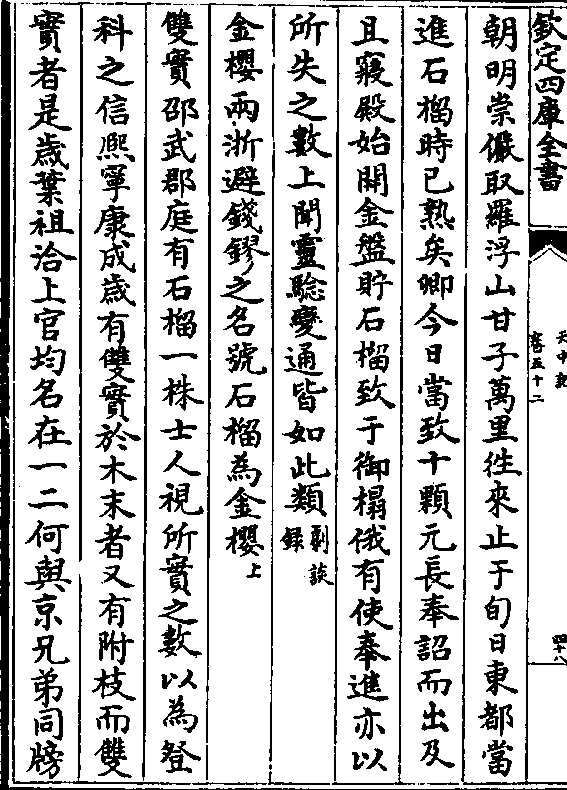 欽定四庫全書
天中記
卷五十二
四十八
朝明崇儼取羅浮山甘子萬里徃來止于旬日東都當
進石榴時已熟矣卿今日當致十顆元長奉詔而出及
且寢殿始開金盤貯石榴致于御榻俄有使奉進亦以
所失之數上聞靈驗變通皆如此類劇談錄
金櫻兩浙避錢鏐之名號石榴為金櫻上
雙實邵武郡庭有石榴一株士人視所實之數以為登
科之信熈寧康戌歲有雙實於木末者又有附枝而雙
實者是歲葉祖洽上官均名在一二何與京兄弟同牓